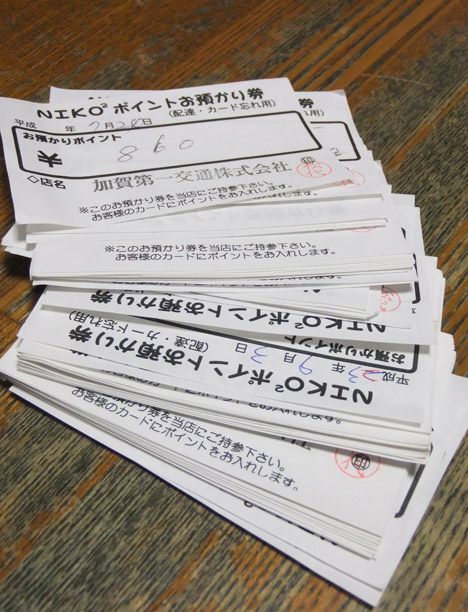 NIKO²ポイントお預かり券
(配達・カード忘れ用)
平成 年 7月20日
お預かりポイント
¥ 860
◇店名 加賀第一交通株式会社 印
※このお預かり券を当店にご持参下さい。
お客様のカードにポイントをお入れします。
れ用)
※このお預かり券を当店にご持参下さい。
お客様のカードにポイントをお入れします。
NIKO²ポイントお預かり券
お預かりポイント
平成23年9月3日
(配達・カード忘れ用)
NIKO²ポイントお預かり券
印
※このお預かり券を当店にご持参下さい。
お客様のカードにポイントをお入れします。